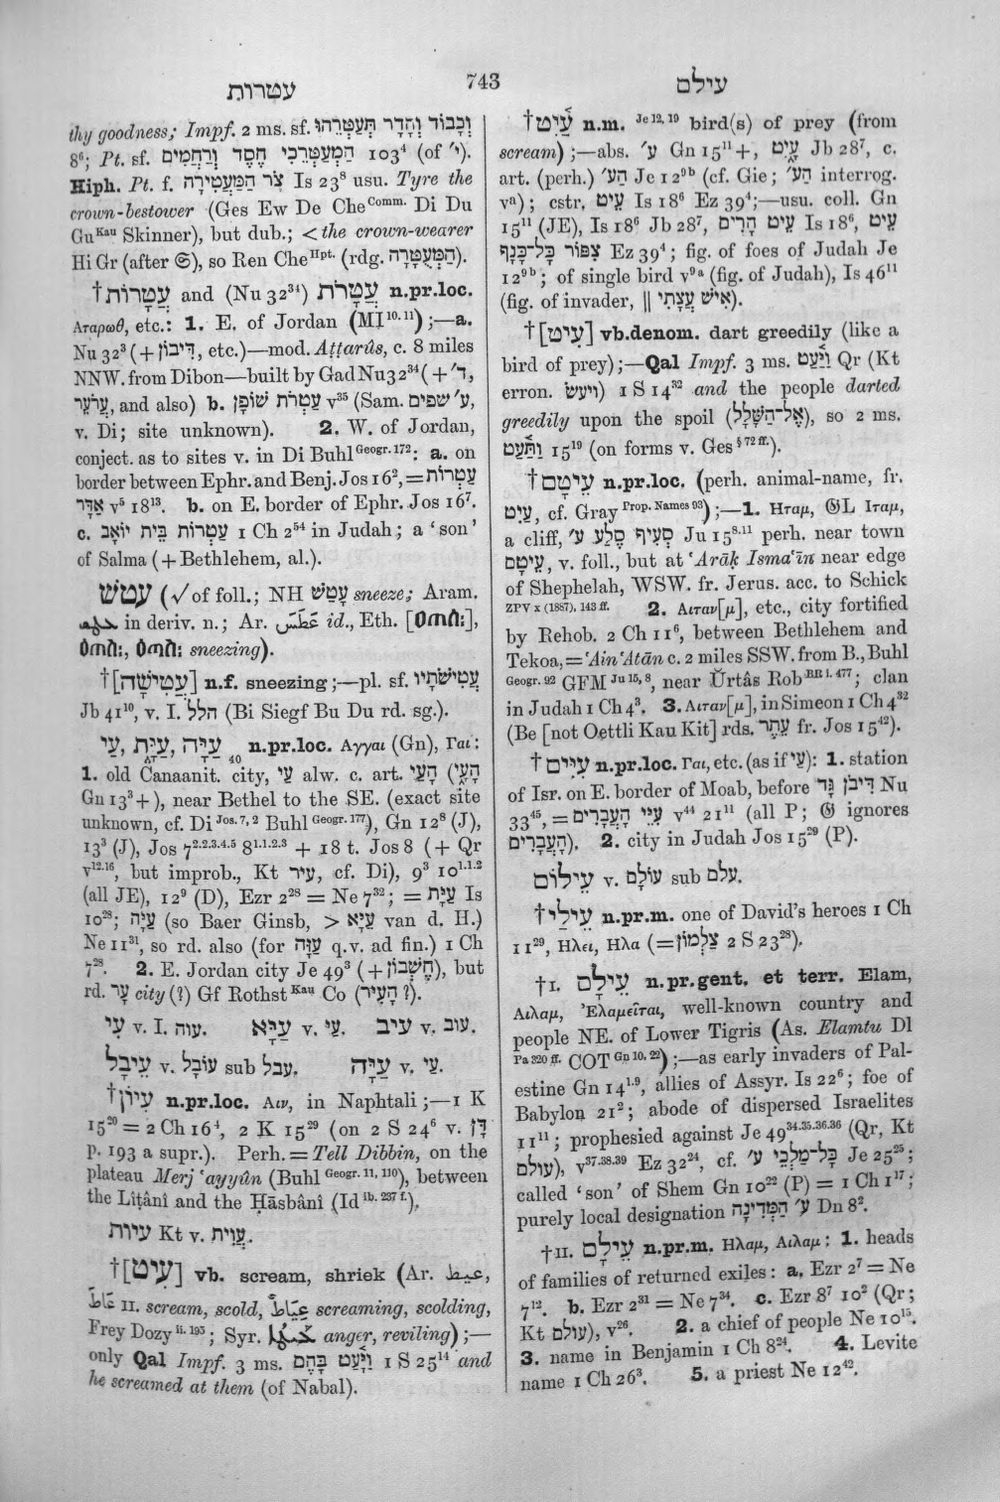 עטרות
743
עילם
thy goodness; Impf. 2 ms. sf. וְכָבוֹד וְהָדָר תְּעַטְּרֵהוּ
8⁶; Pt. sf. הַמְעַטְּרֵכִי חֶסֶד וְרַחֲמִים 103⁴ (of י׳).
Hiph. Pt. f. צֹר הַמַּעֲטִירָה Is 23⁸ usu. Tyre the
crown-bestower (Ges Ew De Che Comm. Di Du
Gu Kau Skinner), but dub.; < the crown-wearer
Hi Gr (after 𝔖), so Ren Che Hpt. (rdg. הַמְּעֻטָּרָה).
†עֲטָרוֹת and (Nu 32³⁴) עֲטָרֹת n.pr.loc.
Αταρωθ, etc.: 1. E. of Jordan (MI 10.11);—a.
Nu 32³ (+דִּיבוֹן, etc.)—mod. Aṭṭarûs, c. 8 miles
NNW. from Dibon—built by Gad Nu 32³⁴ (+ד׳,
עֲרֹעֵר, and also) b. עַטְרֹת שׁוֹפָן v³⁵ (Sam. ע׳ שפים,
v. Di; site unknown). 2. W. of Jordan,
conject. as to sites v. in Di Buhl Geogr. 172: a. on
border between Ephr. and Benj. Jos 16², = עַטְרוֹת
אַדָּר v⁵ 18¹³. b. on E. border of Ephr. Jos 16⁷.
c. עַטְרוֹת בֵּית יוֹאָב 1 Ch 2⁵⁴ in Judah; a ‘son’
of Salma (+Bethlehem, al.).
עטשׁ (√of foll.; NH עָטַשׁ sneeze; Aram.
in deriv. n.; Ar. عَطَسَ id., Eth.
sneezing).
†[עֲטִישָׁה] n.f. sneezing;—pl. sf. עֲטִישֹׁתָיו
Jb 41¹⁰, v. I. הלל (Bi Siegf Bu Du rd. sg.).
עַי, עַיַּת, עַיָּה n.pr.loc. Αγγαι (Gn), Γαι:
40
1. old Canaanit. city, עַי alw. c. art. הָעַי (הָעָי
Gn 13³+), near Bethel to the SE. (exact site
unknown, cf. Di Jos. 7, 2 Buhl Geogr. 177), Gn 12⁸ (J),
13³ (J), Jos 7²·²·³·⁴·⁵ 8¹·¹·²·³ + 18 t. Jos 8 (+ Qr
v¹²·¹⁶, but improb., Kt עיר, cf. Di), 9³ 10¹·¹·²
(all JE), 12⁹ (D), Ezr 2²⁸ = Ne 7³²; = עַיַּת Is
10²⁸; עַיָּה (so Baer Ginsb, > עַיָּא van d. H.)
Ne 11³¹, so rd. also (for עַזָּה q.v. ad fin.) 1 Ch
7²⁸. 2. E. Jordan city Je 49³ (+חֶשְׁבּוֹן), but
rd. עָר city (?) Gf Rothst Kau Co (הָעִיר ?).
עִי v. I. עוה. עַיָּא v. עַי. עיב v. עוב.
עֵיבָל v. עוֹבָל sub עבל. עַיָּה v. עַי.
†עִיּוֹן n.pr.loc. Αιν, in Naphtali;—1 K
15²⁰ = 2 Ch 16⁴, 2 K 15²⁹ (on 2 S 24⁶ v. דָּן
p. 193 a supr.). Perh. = Tell Dibbin, on the
plateau Merj ʻayyûn (Buhl Geogr. 11, 110), between
the Lîṭânî and the Ḥāsbânî (Id ib. 237 f.).
עיות Kt v. עֲוִית.
†[עִיט] vb. scream, shriek (Ar. عيط,
عَاطَ II. scream, scold, عِيَاطٌ screaming, scolding,
Frey Dozy ii. 195; Syr. anger, reviling);—
only Qal Impf. 3 ms. וַיָּעַט בָּהֶם 1 S 25¹⁴ and
he screamed at them (of Nabal).
†עַיִט n.m. Je 12, 19 bird(s) of prey (from
scream);—abs. ע׳ Gn 15¹¹+, עָיִט Jb 28⁷, c.
art. (perh.) הַע׳ Je 12⁹ᵇ (cf. Gie; הַע׳ interrog.
vᵃ); cstr. עֵיט Is 18⁶ Ez 39⁴;—usu. coll. Gn
15¹¹ (JE), Is 18⁶ Jb 28⁷, עֵיט הָרִים Is 18⁶, עֵיט
צִפּוֹר כָּל־כָּנָף Ez 39⁴; fig. of foes of Judah Je
12⁹ᵇ; of single bird v⁹ᵃ (fig. of Judah), Is 46¹¹
(fig. of invader, ‖ אִישׁ עֲצָתִי).
†[עִיט] vb.denom. dart greedily (like a
bird of prey);—Qal Impf. 3 ms. וַיַּעַט Qr (Kt
erron. ויעשׂ) 1 S 14³² and the people darted
greedily upon the spoil (אֶל־הַשָּׁלָל), so 2 ms.
וַתַּעַט 15¹⁹ (on forms v. Ges § 72 ff.).
†עֵיטָם n.pr.loc. (perh. animal-name, fr.
עַיִט, cf. Gray Prop. Names 93);—1. Ηταμ, 𝔊L Ιταμ,
a cliff, סְעִיף סֶלַע ע׳ Ju 15⁸·¹¹ perh. near town
עֵיטָם, v. foll., but at ʻArāḳ Ismaʻîn near edge
of Shephelah, WSW. fr. Jerus. acc. to Schick
ZPV x (1887), 143 ff. 2. Αιταν[μ], etc., city fortified
by Rehob. 2 Ch 11⁶, between Bethlehem and
Tekoa, = ʻAin ʻAtān c. 2 miles SSW. from B., Buhl
Geogr. 92 GFM Ju 15, 8, near Ŭrtâs Rob BR i. 477; clan
in Judah 1 Ch 4³. 3. Αιταν[μ], in Simeon 1 Ch 4³²
(Be [not Oettli Kau Kit] rds. עֶתֶר fr. Jos 15⁴²).
†עִיִּים n.pr.loc. Γαι, etc. (as if עַי): 1. station
of Isr. on E. border of Moab, before דִּיבֹן גָּד Nu
33⁴⁵, = עִיֵּי הָעֲבָרִים v⁴⁴ 21¹¹ (all P; 𝔊 ignores
הָעֲבָרִים). 2. city in Judah Jos 15²⁹ (P).
עֵילוֹם v. עוֹלָם sub עלם.
†עִילַי n.pr.m. one of David’s heroes 1 Ch
11²⁹, Ηλει, Ηλα (=צַלְמוֹן 2 S 23²⁸).
†I. עֵילָם n.pr.gent. et terr. Elam,
Αιλαμ, Ἐλαμεῖται, well-known country and
people NE. of Lower Tigris (As. Elamtu Dl
Pa 320 ff. COT Gn 10, 22);—as early invaders of Pal-
estine Gn 14¹·⁹, allies of Assyr. Is 22⁶; foe of
Babylon 21²; abode of dispersed Israelites
11¹¹; prophesied against Je 49³⁴·³⁵·³⁶·³⁶ (Qr, Kt
עולם), v³⁷·³⁸·³⁹ Ez 32²⁴, cf. כָּל־מַלְכֵי ע׳ Je 25²⁵;
called ‘son’ of Shem Gn 10²² (P) = 1 Ch 1¹⁷;
purely local designation ע׳ הַמְּדִינָה Dn 8².
†II. עֵילָם n.pr.m. Ηλαμ, Αιλαμ: 1. heads
of families of returned exiles: a. Ezr 2⁷ = Ne
7¹². b. Ezr 2³¹ = Ne 7³⁴. c. Ezr 8⁷ 10² (Qr;
Kt עולם), v²⁶. 2. a chief of people Ne 10¹⁵.
3. name in Benjamin 1 Ch 8²⁴. 4. Levite
name 1 Ch 26³. 5. a priest Ne 12⁴².